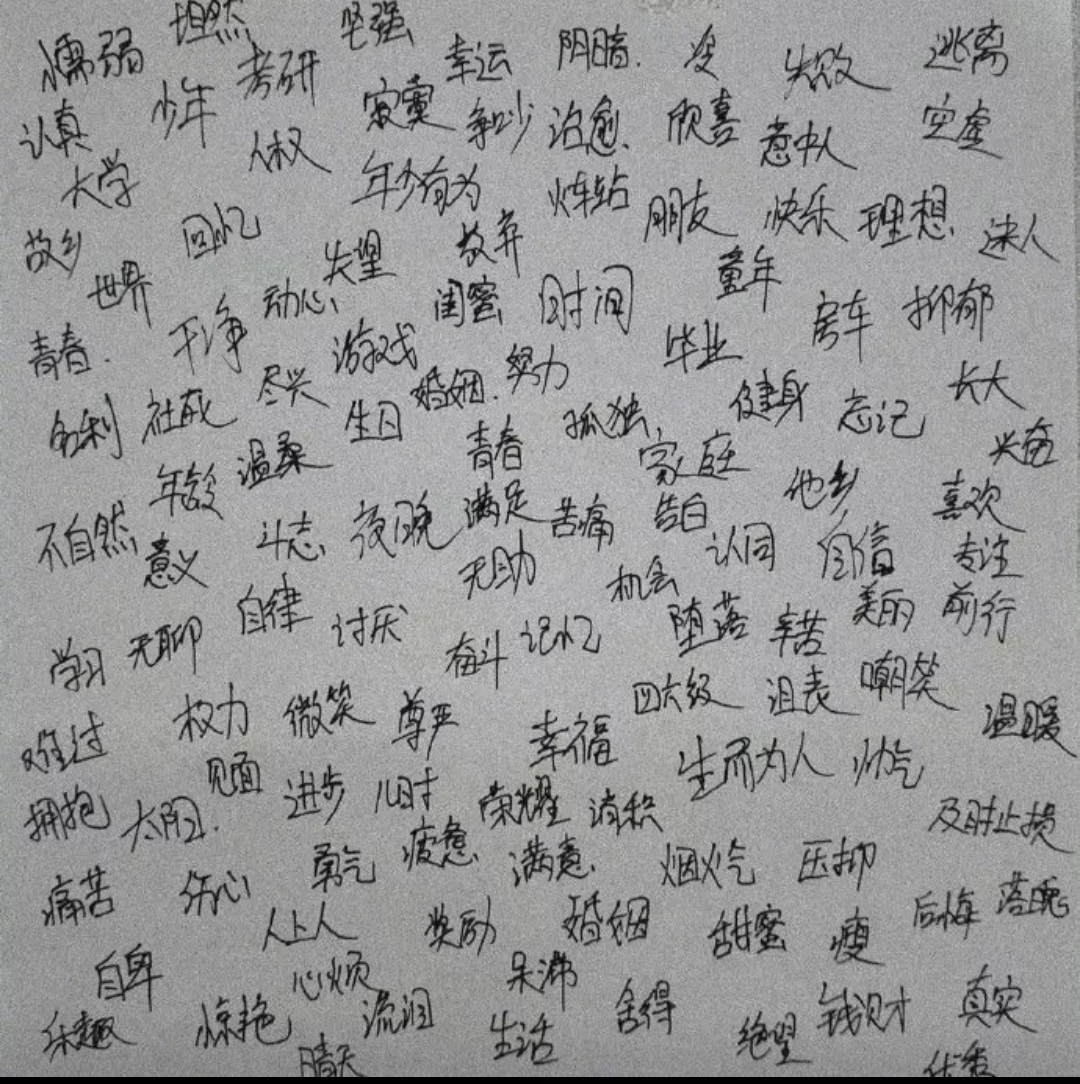 懦弱 坦然 坚强 幸运 阴暗. 失败 逃离
认真 少年 考研 寂寞 争吵 治愈、 欣喜 空虚
大学 人权 年少有为 火车站 朋友 快乐 理想 迷人
故乡 回忆 失望 放弃 童年
世界 动心、 闺蜜 时间 房车 抑郁
青春. 干净 游戏 努力 毕业 长大
名利 社戏 尽兴 生日 婚姻. 孤独, 健身 忘记 兴奋
年龄 温柔 青春 家庭 他乡 喜欢
不自然 意义 斗志 夜晚 满足 苦痛 告白 认同 自信 专注
无助 机会 美丽 前行
学习 无聊 自律 讨厌 奋斗 记忆 堕落 辛苦
难过 权力 微笑 尊严 幸福 四六级 沮丧 嘲笑 温暖
拥抱 太阳. 见面 进步 儿时 荣耀 消积 生而为人 帅气 及时止损
痛苦 伤心 勇气 疲惫 满意. 烟火气 压抑
人上人 奖励 婚姻 甜蜜 瘦 后悔 落魄
自卑 心烦 呆滞
乐趣 惊艳 流泪 生活 舍得 绝望 钱财 真实
晴天 优秀